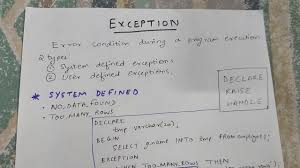 EXCEPTION
Error condition during a program execution
2 types
1) System defined exceptions
2) User defined exceptions.
DECLARE
RAISE
HANDLE
* SYSTEM DEFINED
- NO_DATA_FOUND
- TOO_MANY_ROWS
DECLARE
tmp varchar(20);
BEGIN
Select gname INTO tmp from employees;
EXCEPTION
WHEN TOO_MANY_ROWS THEN